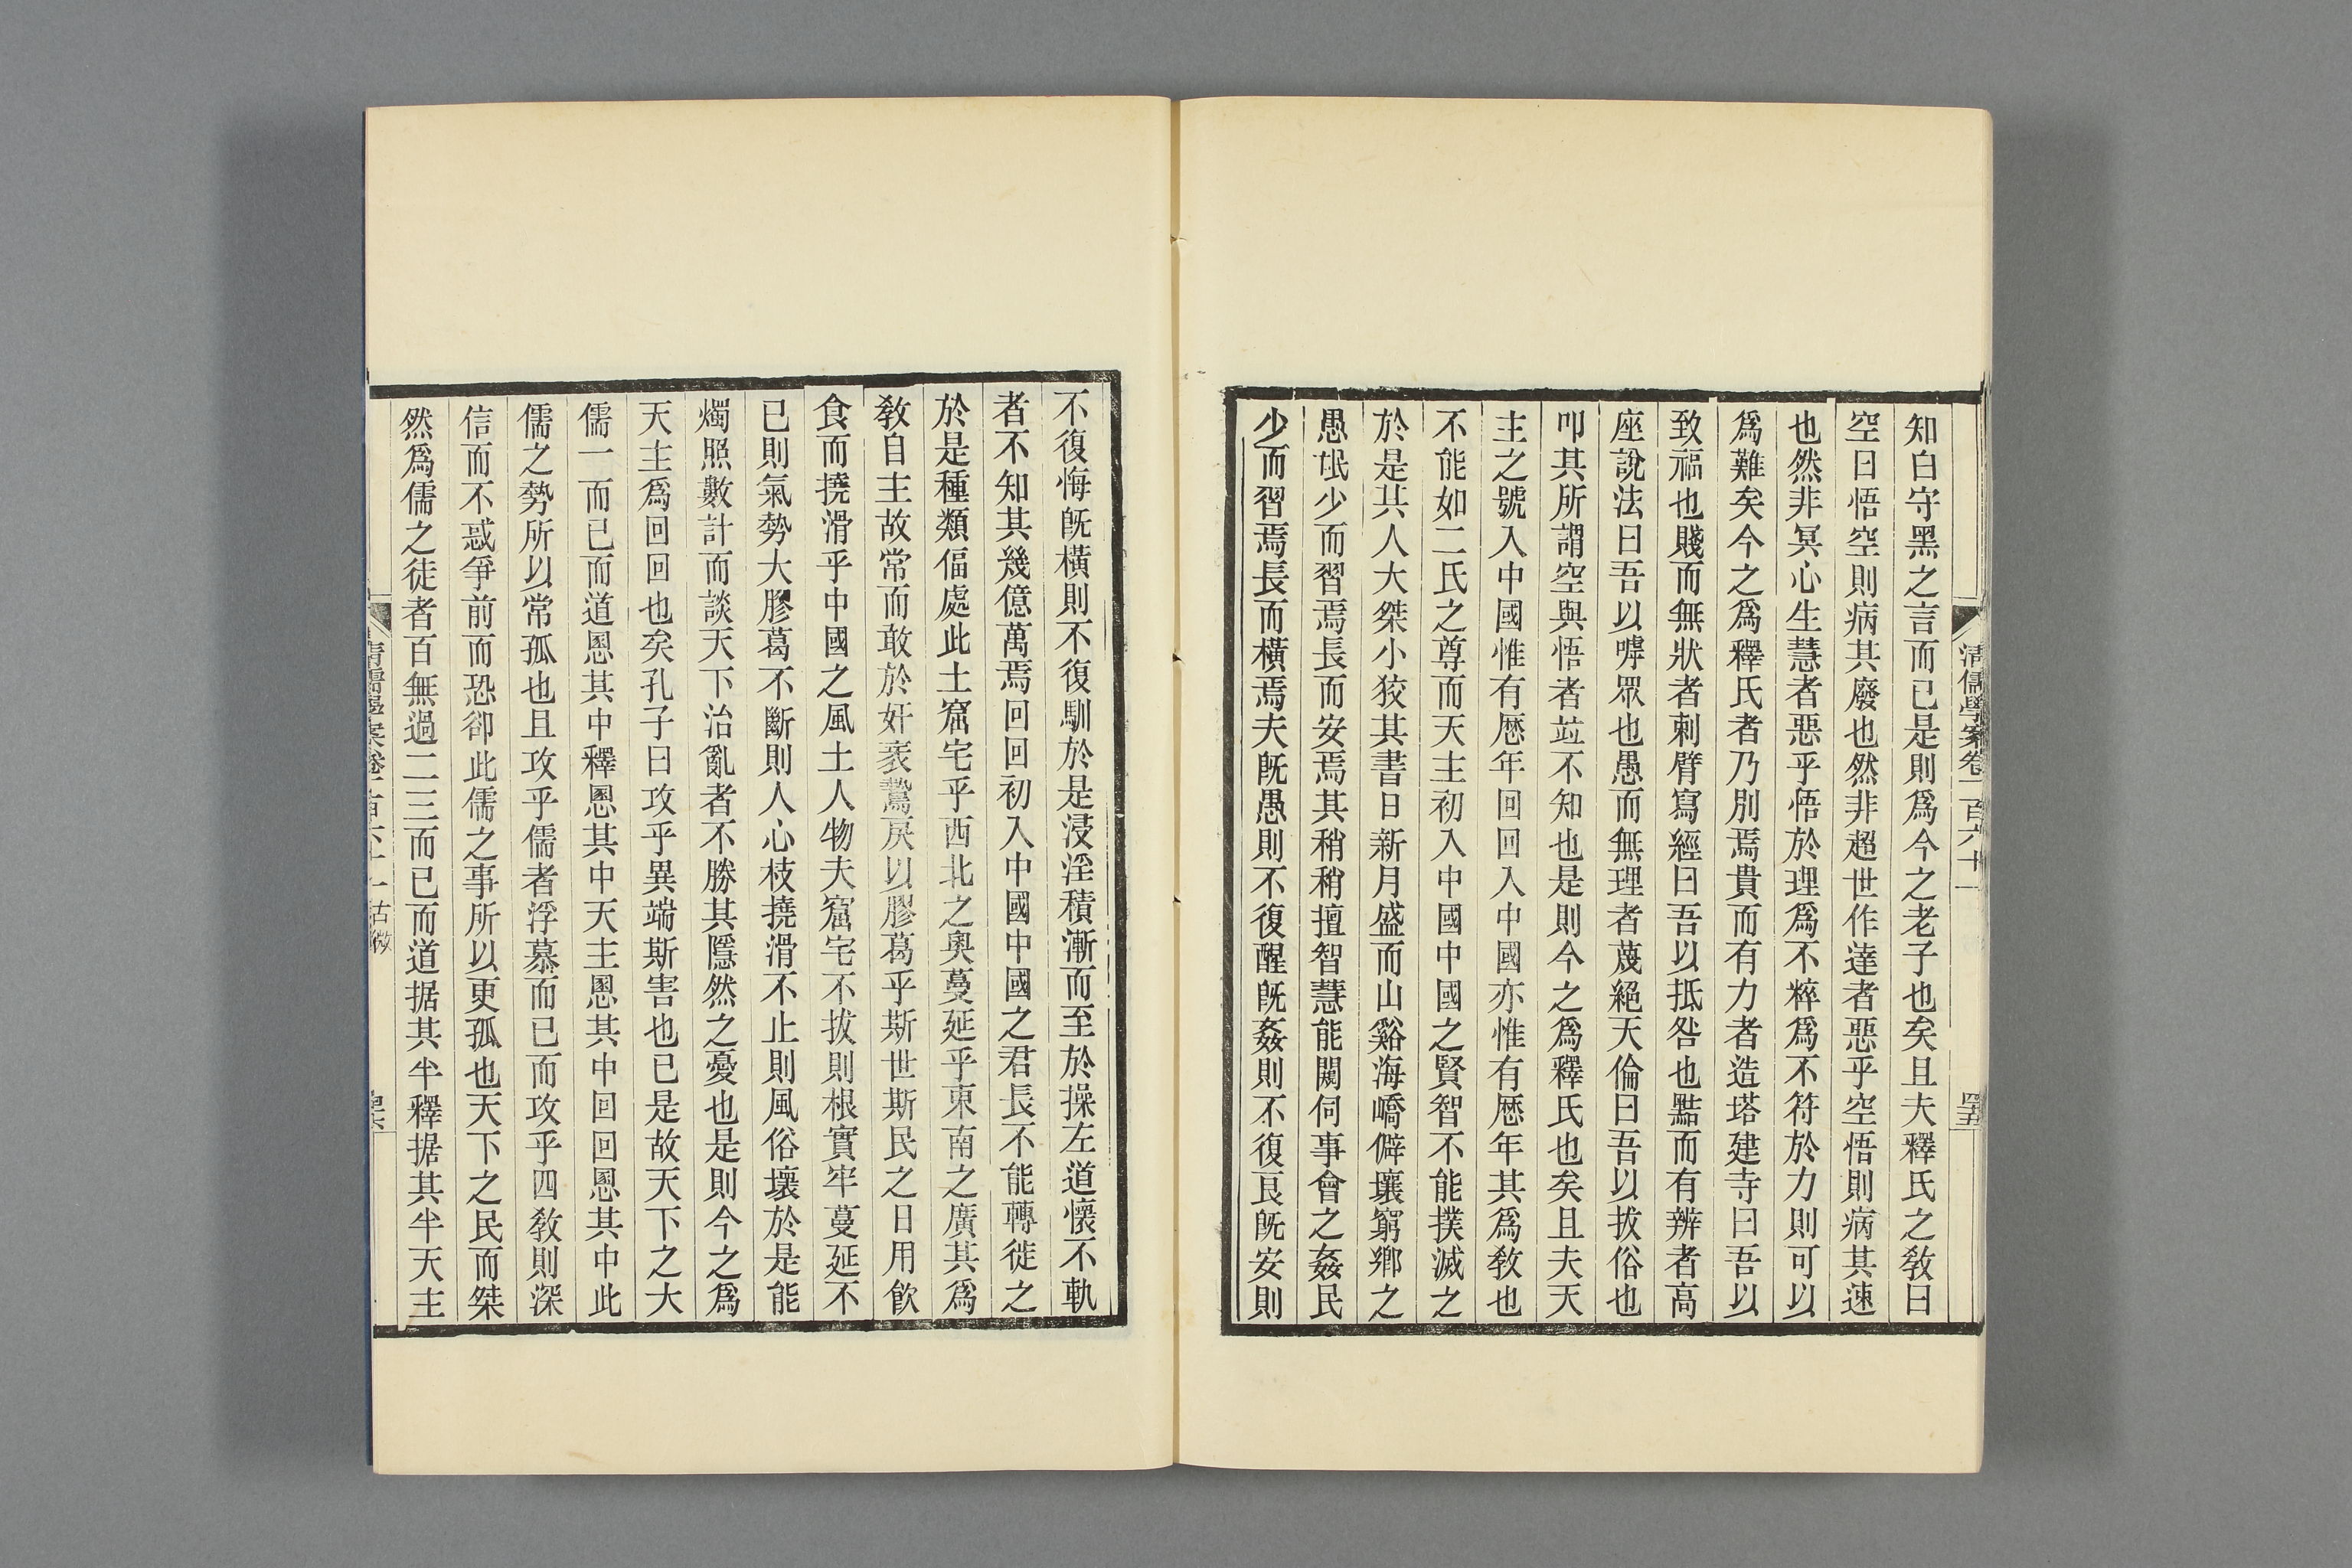 清儒學案卷一百六十一
四五
知白守黑之言而已是則爲今之老子也矣且夫釋氏之敎曰
空曰悟空則病其廢也然非超世作達者惡乎空悟則病其速
也然非冥心生慧者惡乎悟於理爲不粹爲不符於力則可以
爲難矣今之爲釋氏者乃別焉貴而有力者造塔建寺曰吾以
致福也賤而無狀者刺臂寫經曰吾以抵咎也黠而有辨者高
座說法曰吾以嘑眾也愚而無理者蔑絕天倫曰吾以拔俗也
叩其所謂空與悟者竝不知也是則今之爲釋氏也矣且夫天
主之號入中國惟有厯年回回入中國亦惟有厯年其爲敎也
不能如二氏之尊而天主初入中國中國之賢智不能撲滅之
於是其人大桀小狡其書日新月盛而山谿海嶠僻壤窮鄉之
愚氓少而習焉長而安焉其稍稍擅智慧能闚伺事會之姦民
少而習焉長而橫焉夫旣愚則不復醒旣姦則不復良旣安則
不復悔旣橫則不復馴於是浸淫積漸而至於操左道懷不軌
者不知其幾億萬焉回回初入中國中國之君長不能轉徙之
於是種類偪處此土窟宅乎西北之奧蔓延乎東南之廣其爲
敎自主故常而敢於奸衺鷙戾以膠葛乎斯世斯民之日用飮
食而撓滑乎中國之風土人物夫窟宅不拔則根實牢蔓延不
已則氣勢大膠葛不斷則人心枝撓滑不止則風俗壞於是能
燭照數計而談天下治亂者不勝其隱然之憂也是則今之爲
天主爲回回也矣孔子曰攻乎異端斯害也已是故天下之大
儒一而已而道慁其中釋慁其中天主慁其中回回慁其中此
儒之勢所以常孤也且攻乎儒者浮慕而已而攻乎四敎則深
信而不惑爭前而恐卻此儒之事所以更孤也天下之民而桀
然爲儒之徒者百無過二三而已而道据其半釋据其半天主
清儒學案卷一百六十一 古微